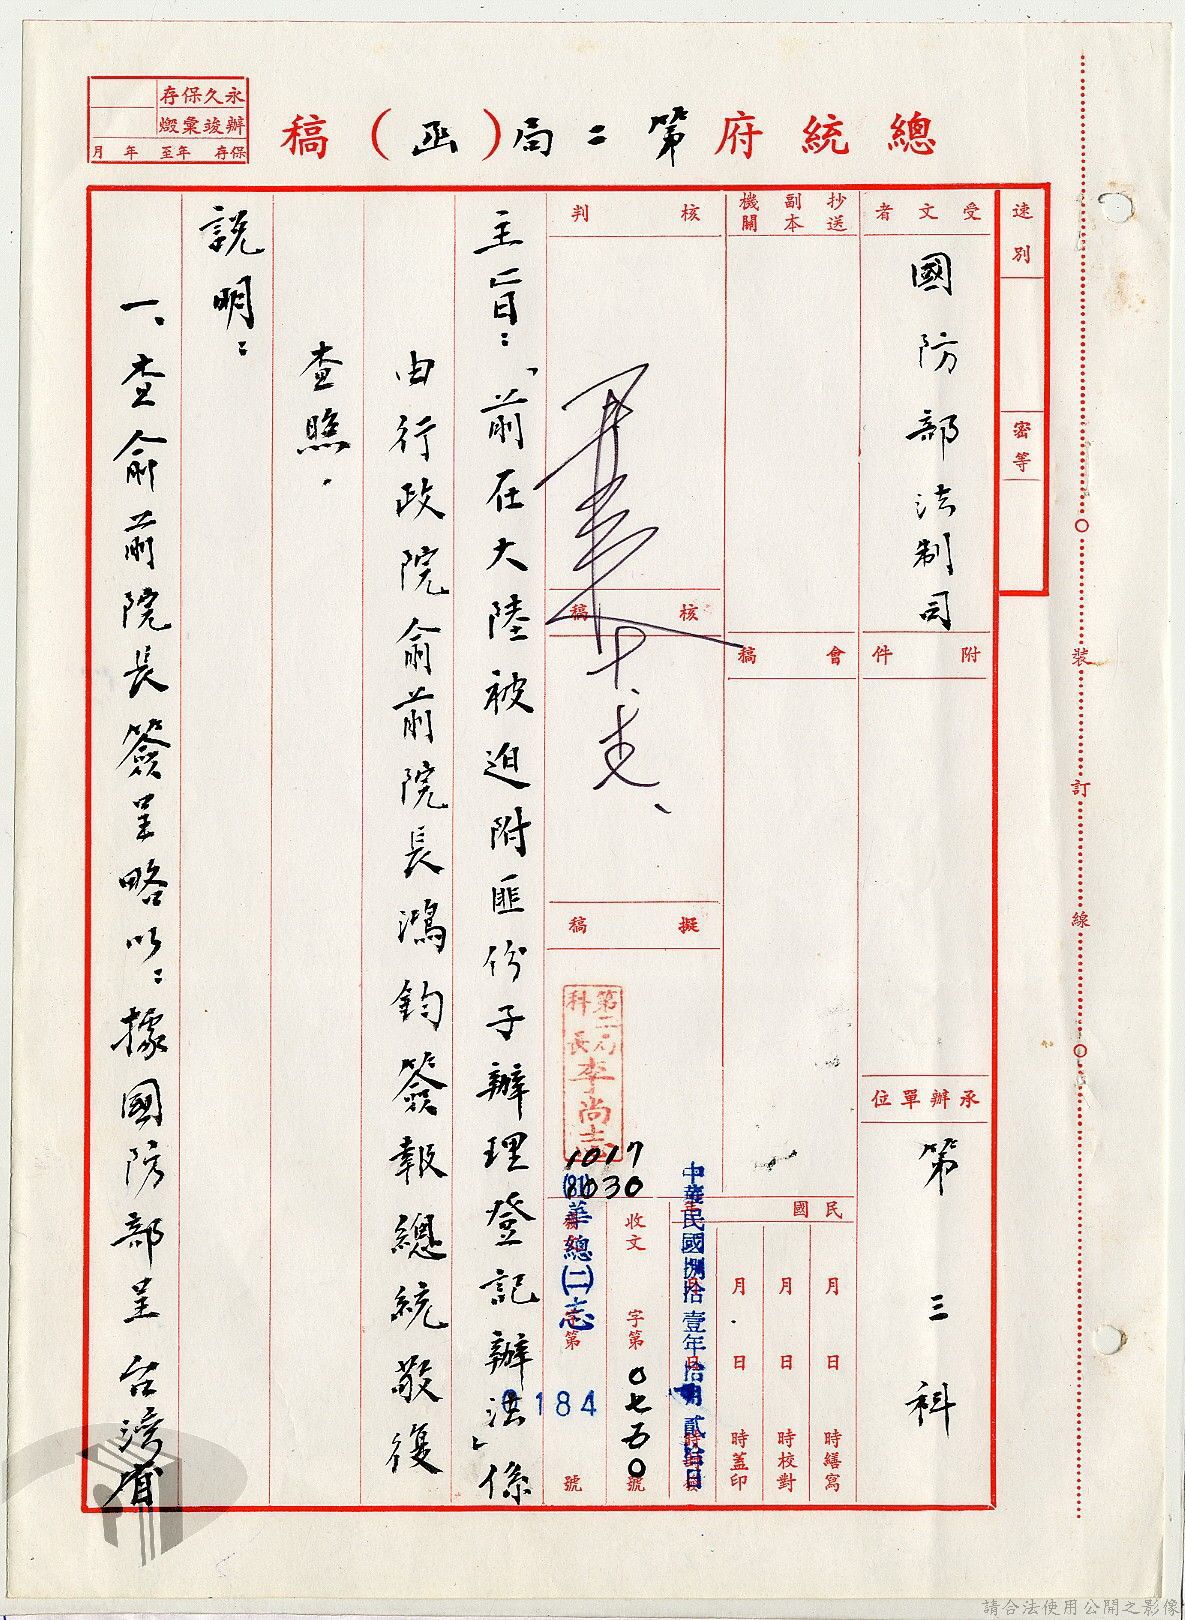 總統府第二局(函)稿
永久保存
辦竣彙燬
保存 年至 年 月
速別
密等
受文者
國防部法制司
附件
承辦單位
第三科
抄送副本機關
會稿
核判
核稿
擬稿
第二局科長李尚志
1017
1030
民國
月 日 時繕寫
月 日 時校對
月 日 時蓋印
中華民國捌拾壹年拾月貳拾日
收文 字第 0七五0 號
(81)華總(二)志
字第 184 號
主旨:「前在大陸被迫附匪份子辦理登記辦法」係
由行政院俞前院長鴻鈞簽報總統敬復
查照.
說明:
一、查俞前院長簽呈略以:據國防部呈 台灣省
裝
訂
線
請合法使用公開之影像